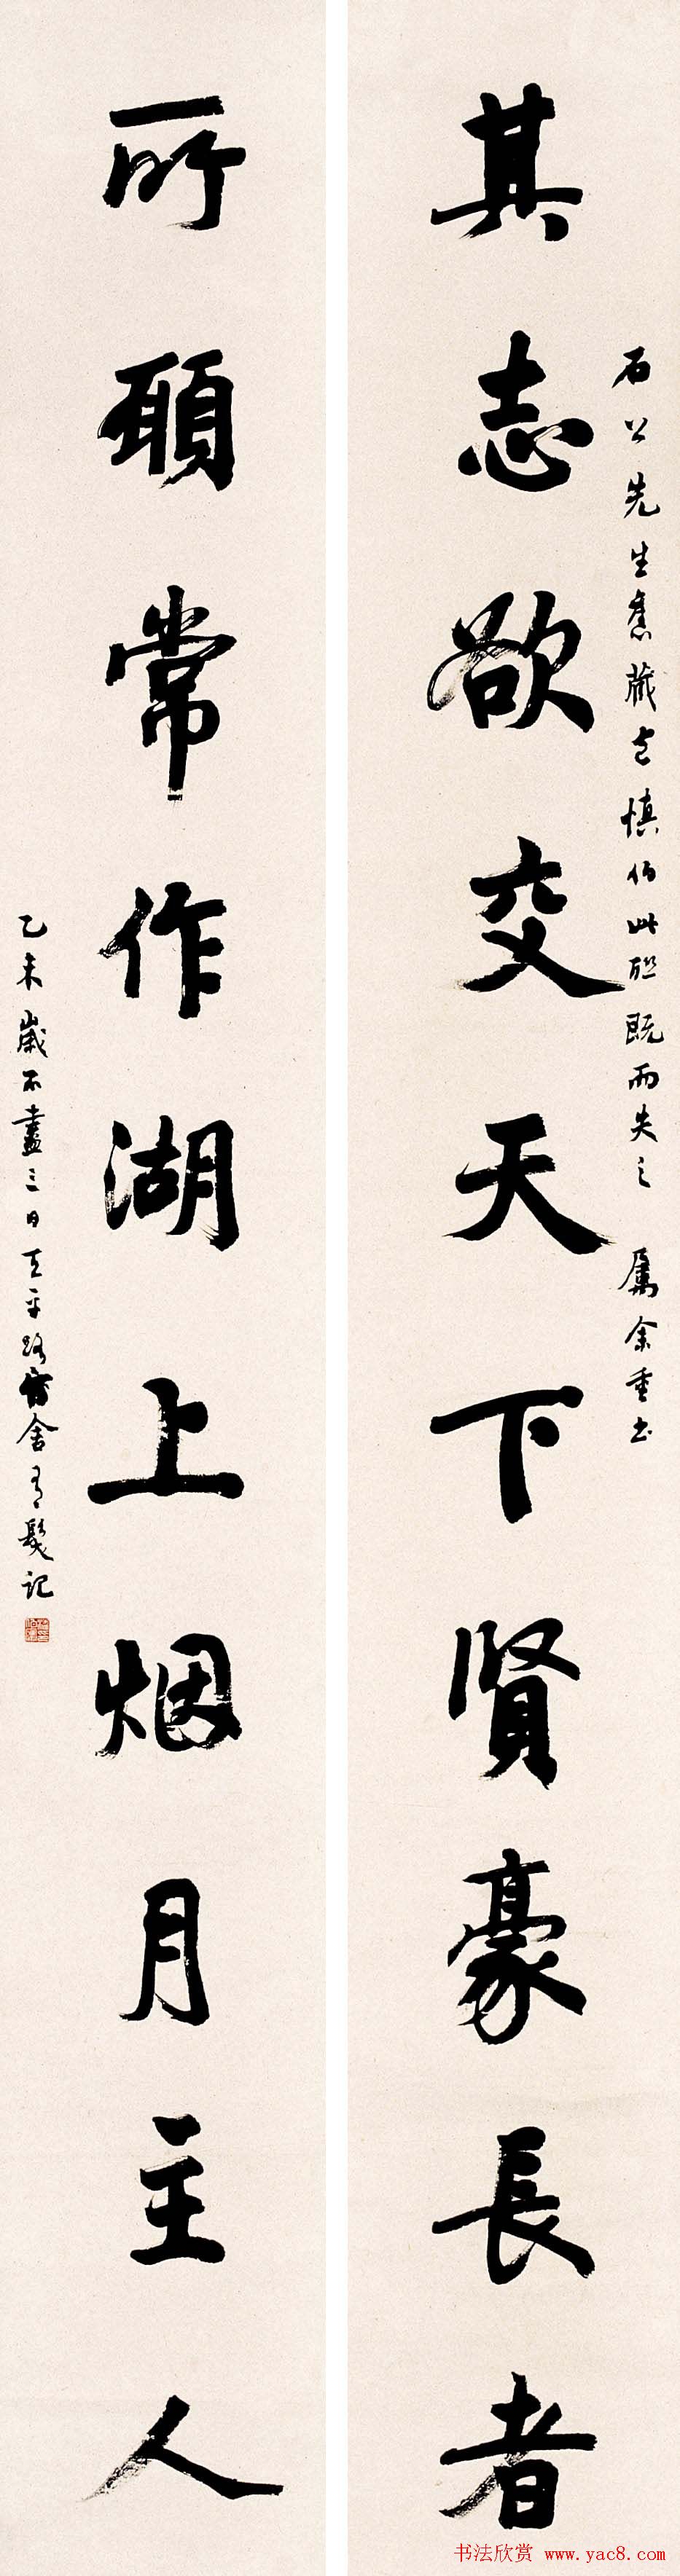 石公先生舊藏包慎伯此聯既而失之 屬余重書
其志欲交天下賢豪長者
所願常作湖上烟月主人
乙未歲不盡三日天平路舍有髮記
书法欣赏 www.yac8.com